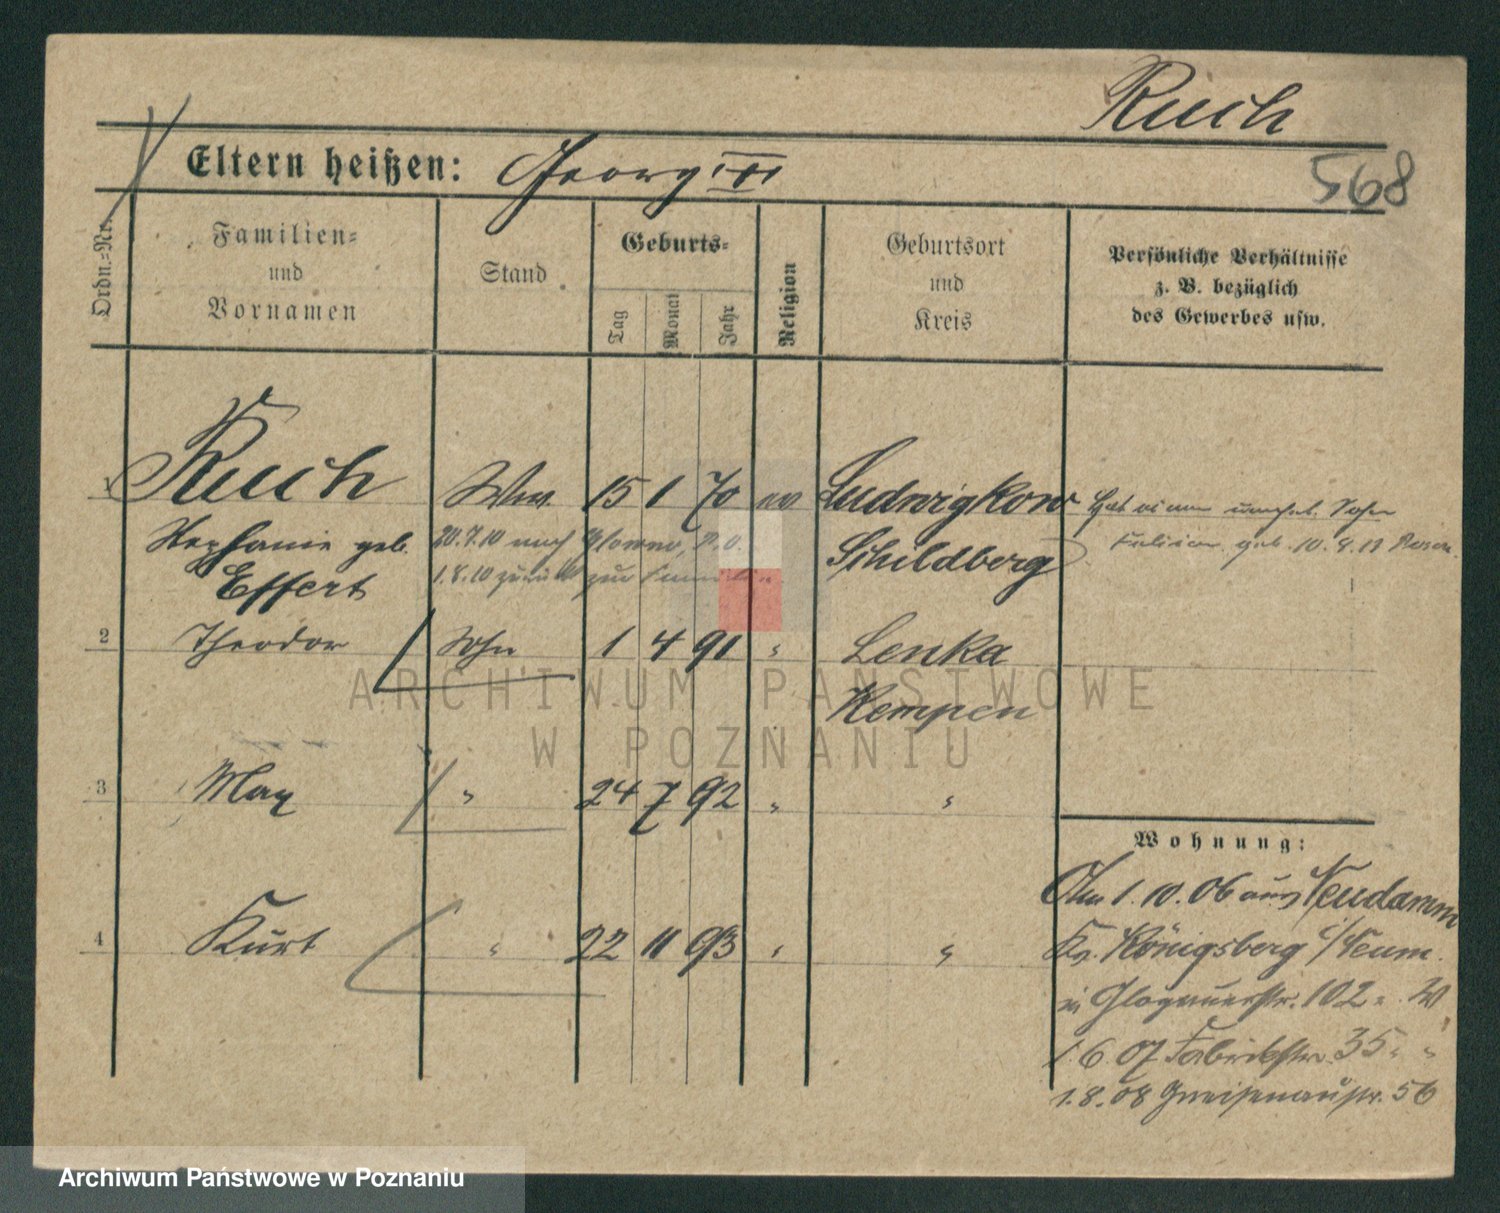 Ruch
568
Eltern heißen: Georg III
Ordn.-Nr.
Familien-
und
Vornamen
Stand
Geburts-
Tag
Monat
Jahr
Religion
Geburtsort
und
Kreis
Persönliche Verhältnisse
z. B. bezüglich
des Gewerbes usw.
1 Ruch Ww. 15 1 70 ev Ludwigkow
Stephanie geb. Schildberg
Effert
20.7.10 nach
1.8.10 zurück zur
Hat einen unehel. Sohn
geb. 10. Posen.
2 Theodor Sohn 1 4 91 " Lenka
Kempen
3 Max " 24 7 92 " "
4 Kurt " 22 11 93 " "
Wohnung:
Am 1.10.06 aus Neudamm
Kr. Königsberg i/Neum.
in Glogauerstr. 102
1.6.07 Fabrikstr. 35 " "
1.8.08 Gneisenaustr. 56
ARCHIWUM PAŃSTWOWE
W POZNANIU
Archiwum Państwowe w Poznaniu